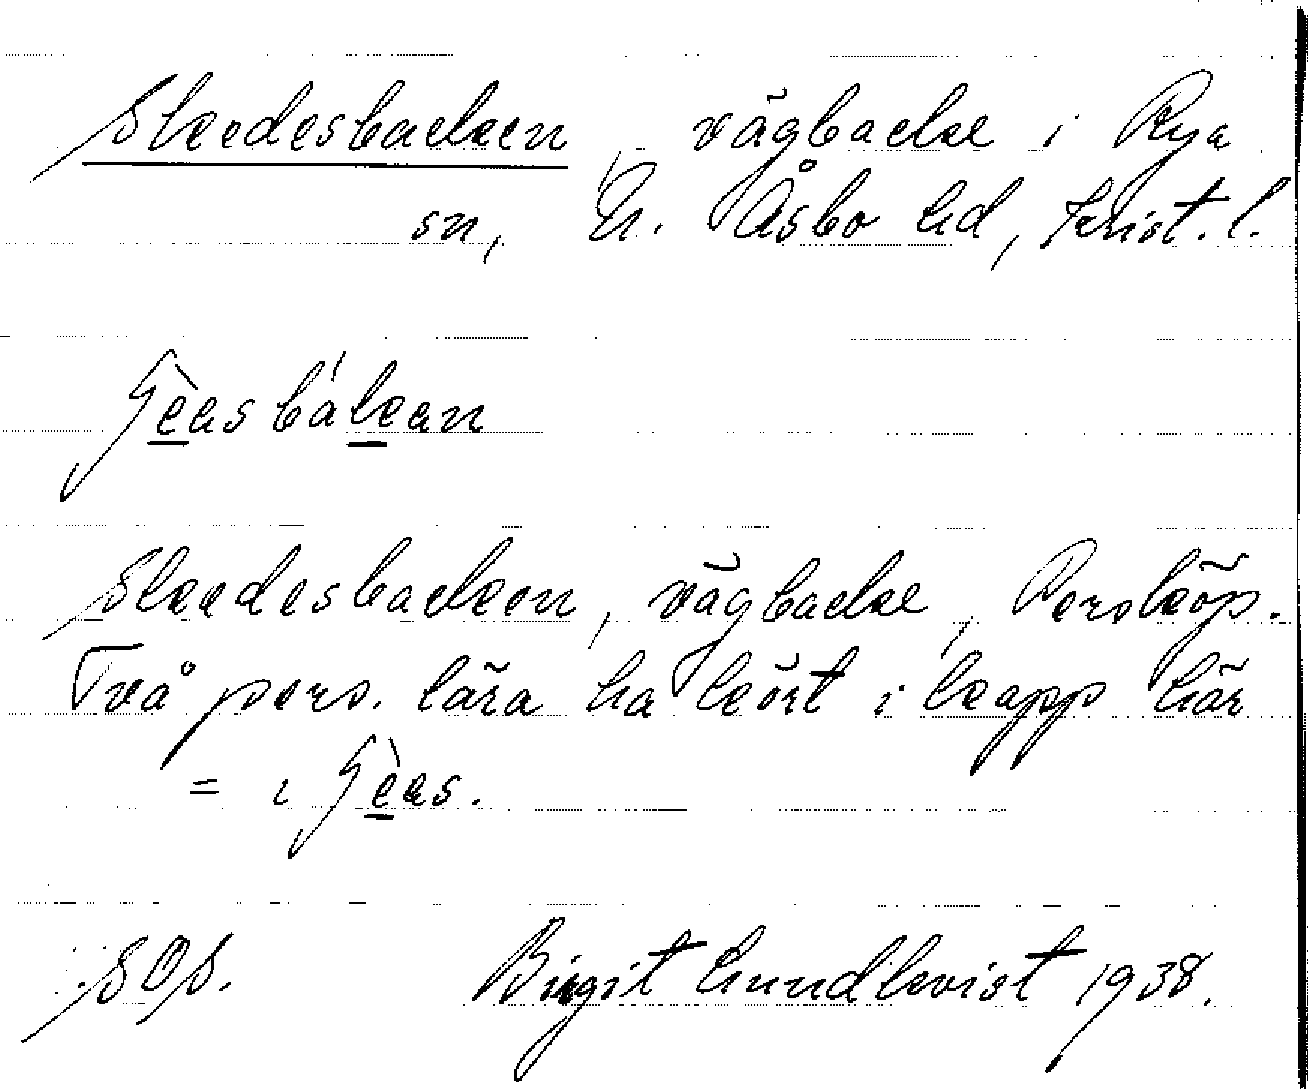 Skedesbacken, vägbacke i Rya
sn, N. Åsbo hd, Krist. l.
ʃèəsbákən
Skedesbacken, vägbacke, Persköp.
Två pers. lära ha kört i kapp här
= i ʃèəs.
SOS. Birgit Lundkvist 1938.